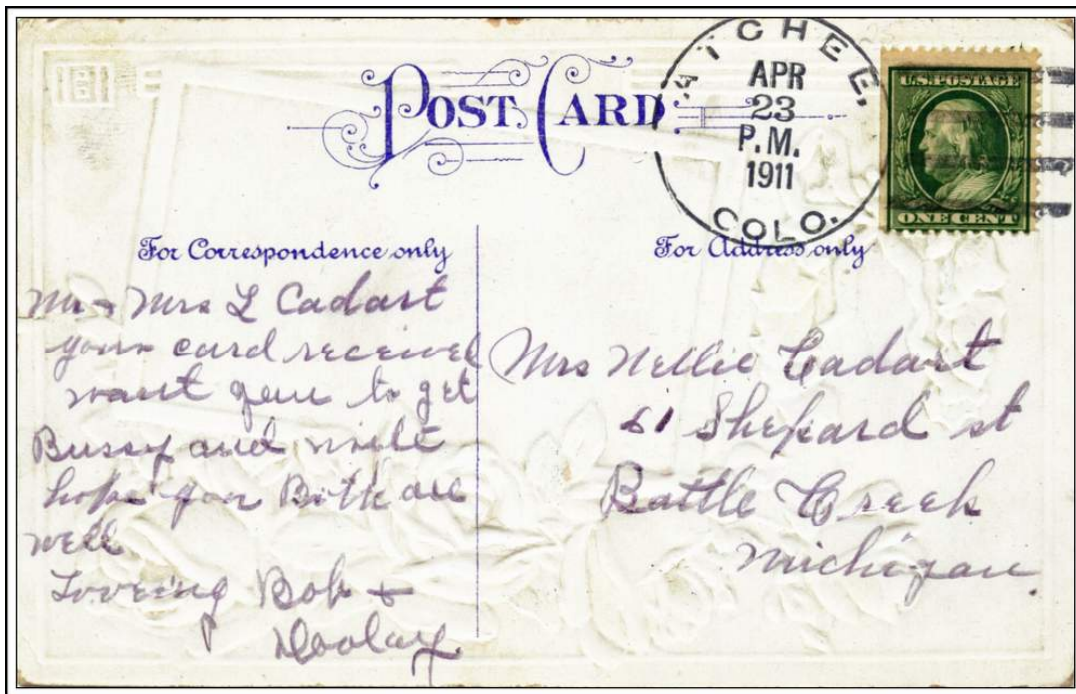 POST CARD
ATCHEE,
APR
23
P.M.
1911
COLO.
U.S. POSTAGE
ONE CENT
For Correspondence only
Mr + Mrs L Cadart
your card received
want you to get
Bussy and write
hope you Both are
well
Loveing Bob +
For Address only
Mrs Nellie Cadart
61 Shepard st
Battle Creek
Michigan